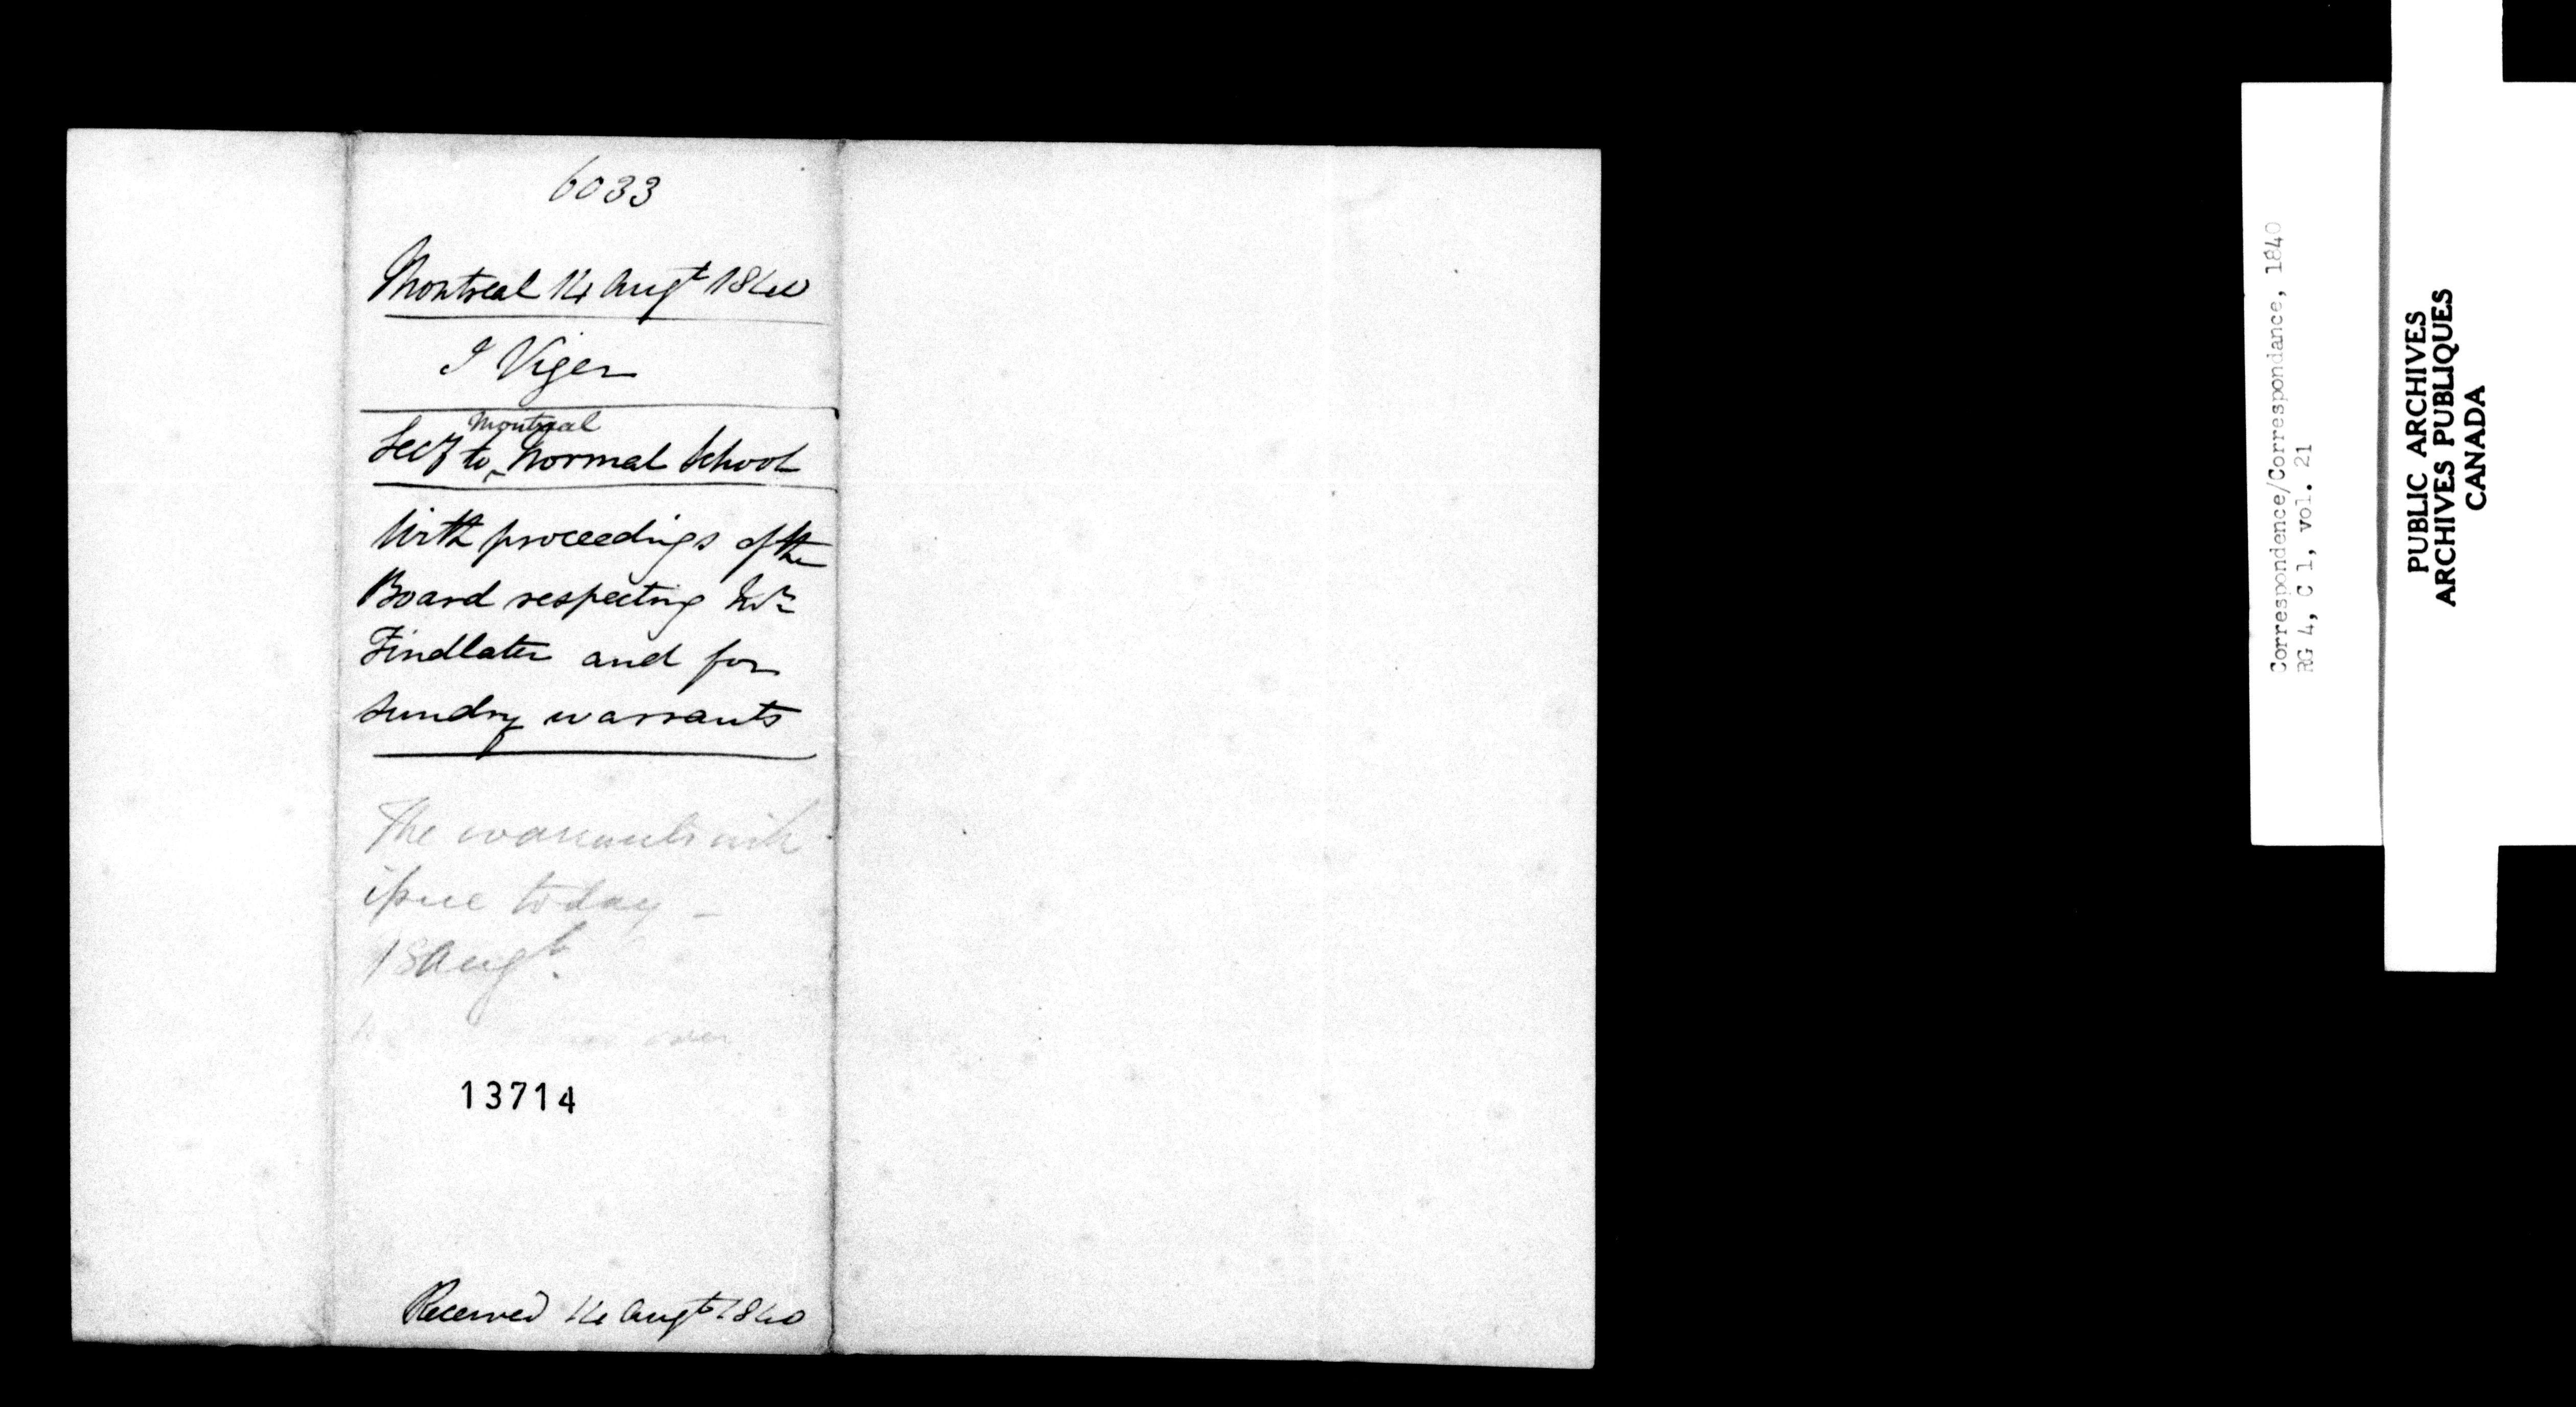 6033
Montreal 14 Augt 1840
J Viger
Montreal
Secy to ‸ Normal School
With proceedings of the
Board respecting Mr
Findlater and for
sundry warrants
The warrants will
issue today –
18 Augt.
13714
Received 14 Augt 1840
Correspondence/Correspondance, 1840
RG 4, C 1, vol. 21
PUBLIC ARCHIVES
ARCHIVES PUBLIQUES
CANADA